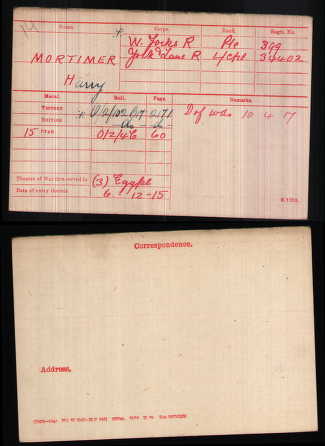 Name. Corps. Rank. Regtl. No.
* W. Yorks R Pte 399
MORTIMER York & Lanc R L/Cpl 34402
Harry
Medal. Roll. Page. Remarks.
Victory * O/2/102 2171 Dof was 10 4 17
British do do
15 Star O/2/4C 60
Theatre of War first served in (3) Egypt
Date of entry therein 6-12-15
K 1380.
Correspondence.
Address.